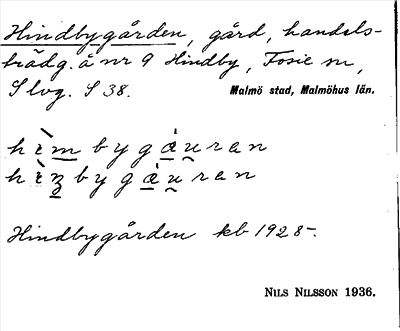 Hindbygården, gård, handels-
trädg. å nr 9 Hindby, Fosie sn,
S lvg. S 38. Malmö stad, Malmöhus län.
hìmbygàuran
hìnbygàuran
Hindbygården kb 1928-.
NILS NILSSON 1936.